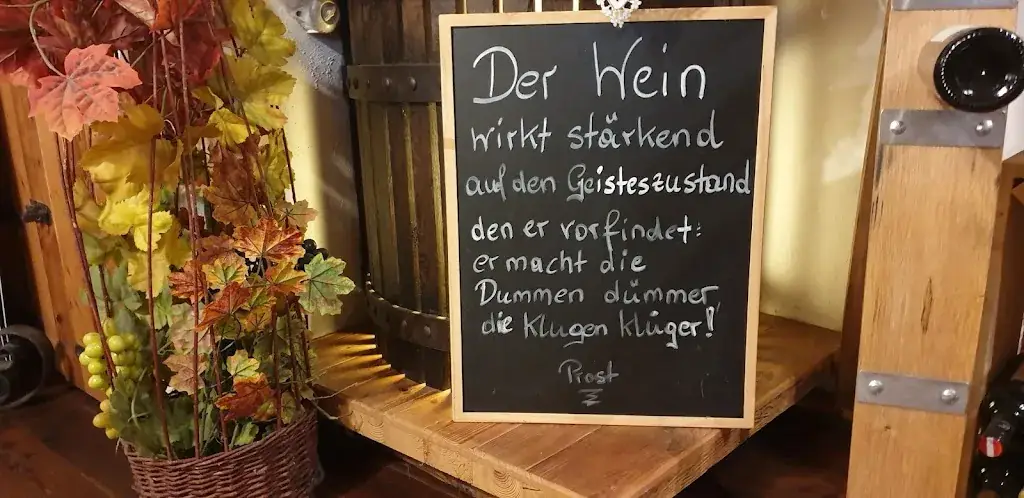 Der Wein
wirkt stärkend
auf den Geisteszustand
den er vorfindet:
er macht die
Dummen dümmer,
die Klugen klüger!
Prost